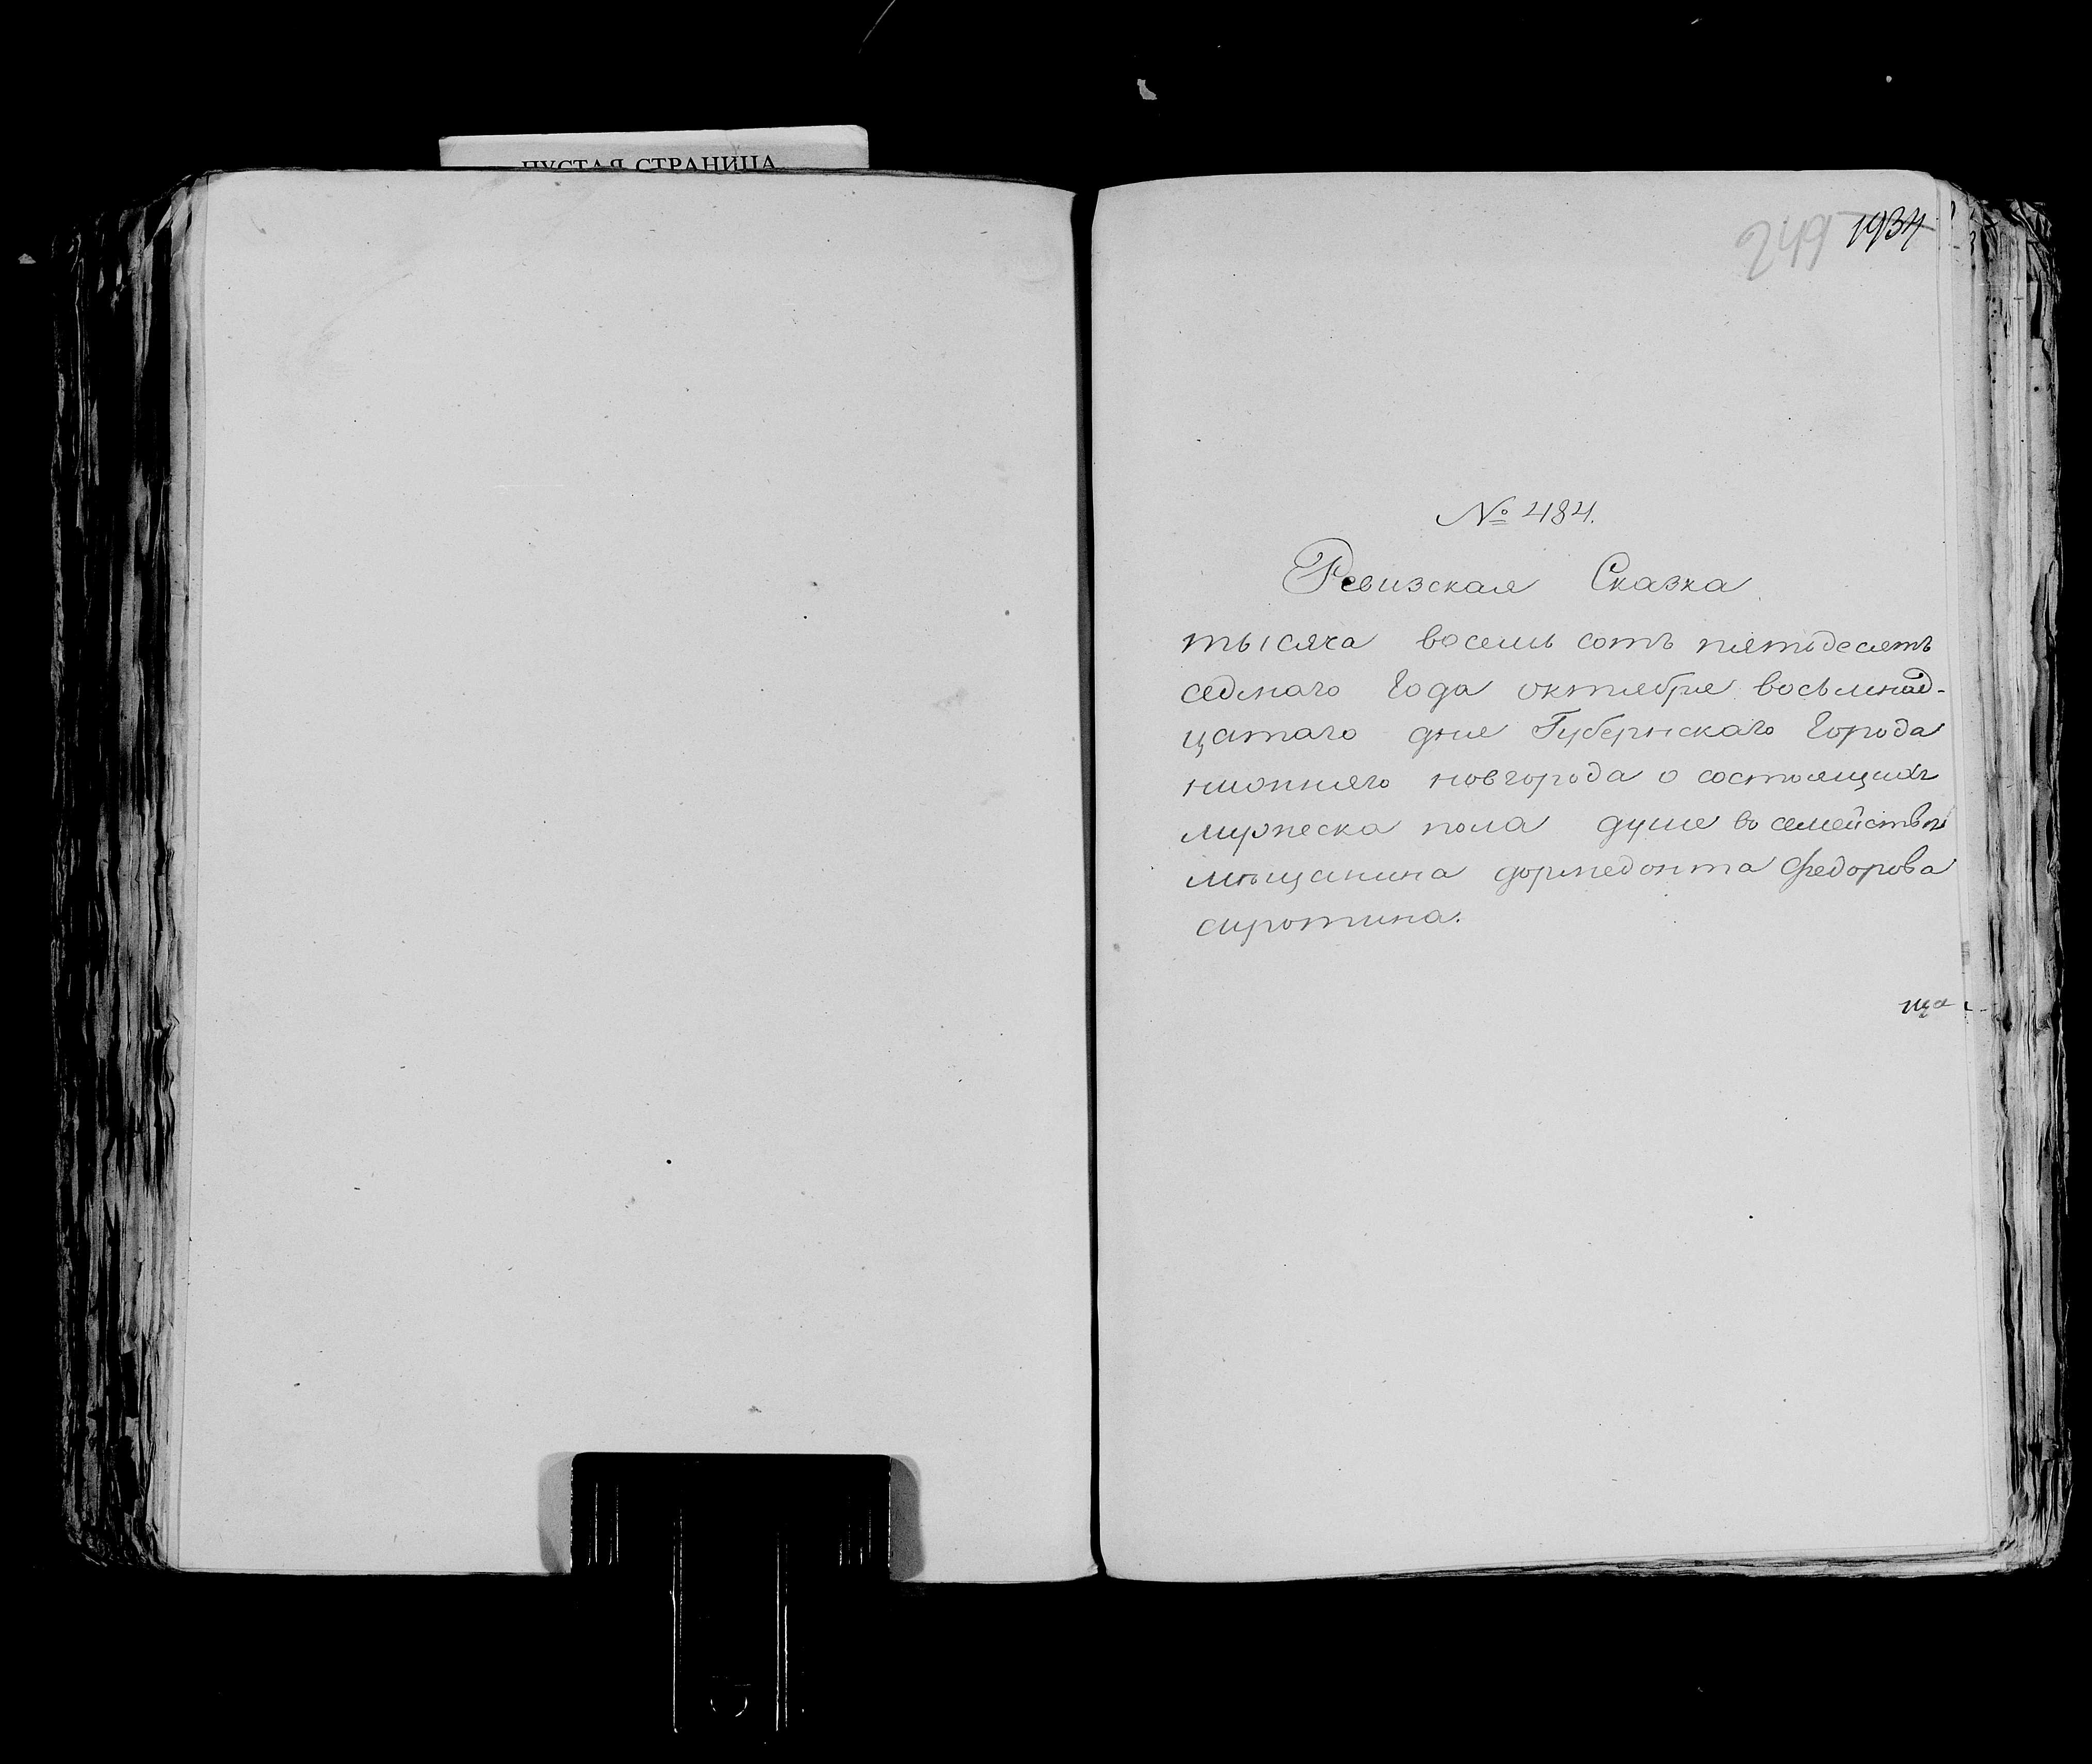 ПУСТАЯ СТРАНИЦА
249
1934
№ 484.
Ревизская Сказка
тысяча восемь сотъ пятьдесятъ
седмаго Года октября восьмнад-
цатаго дня Губернскаго Города
нижняго новгорода о состоящихъ
мужеска пола душе во семействѣ
мѣщанина дормедонта Федорова
сиротина.
ща